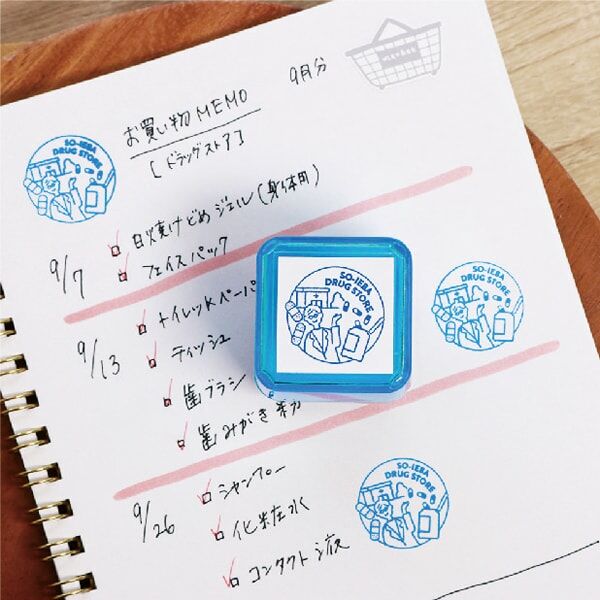 9月分
お買い物MEMO
[ドラッグストア]
SO-IEBA
DRUG STORE
日焼けどめジェル(身体用)
9/7
フェイスパック
トイレットペーパ
9/13
ティッシュ
歯ブラシ
歯みがき粉
SO-IEBA
DRUG STORE
SO-IEBA
DRUG STORE
9/26
シャンプー
化粧水
コンタクト液
SO-IEBA
DRUG STORE